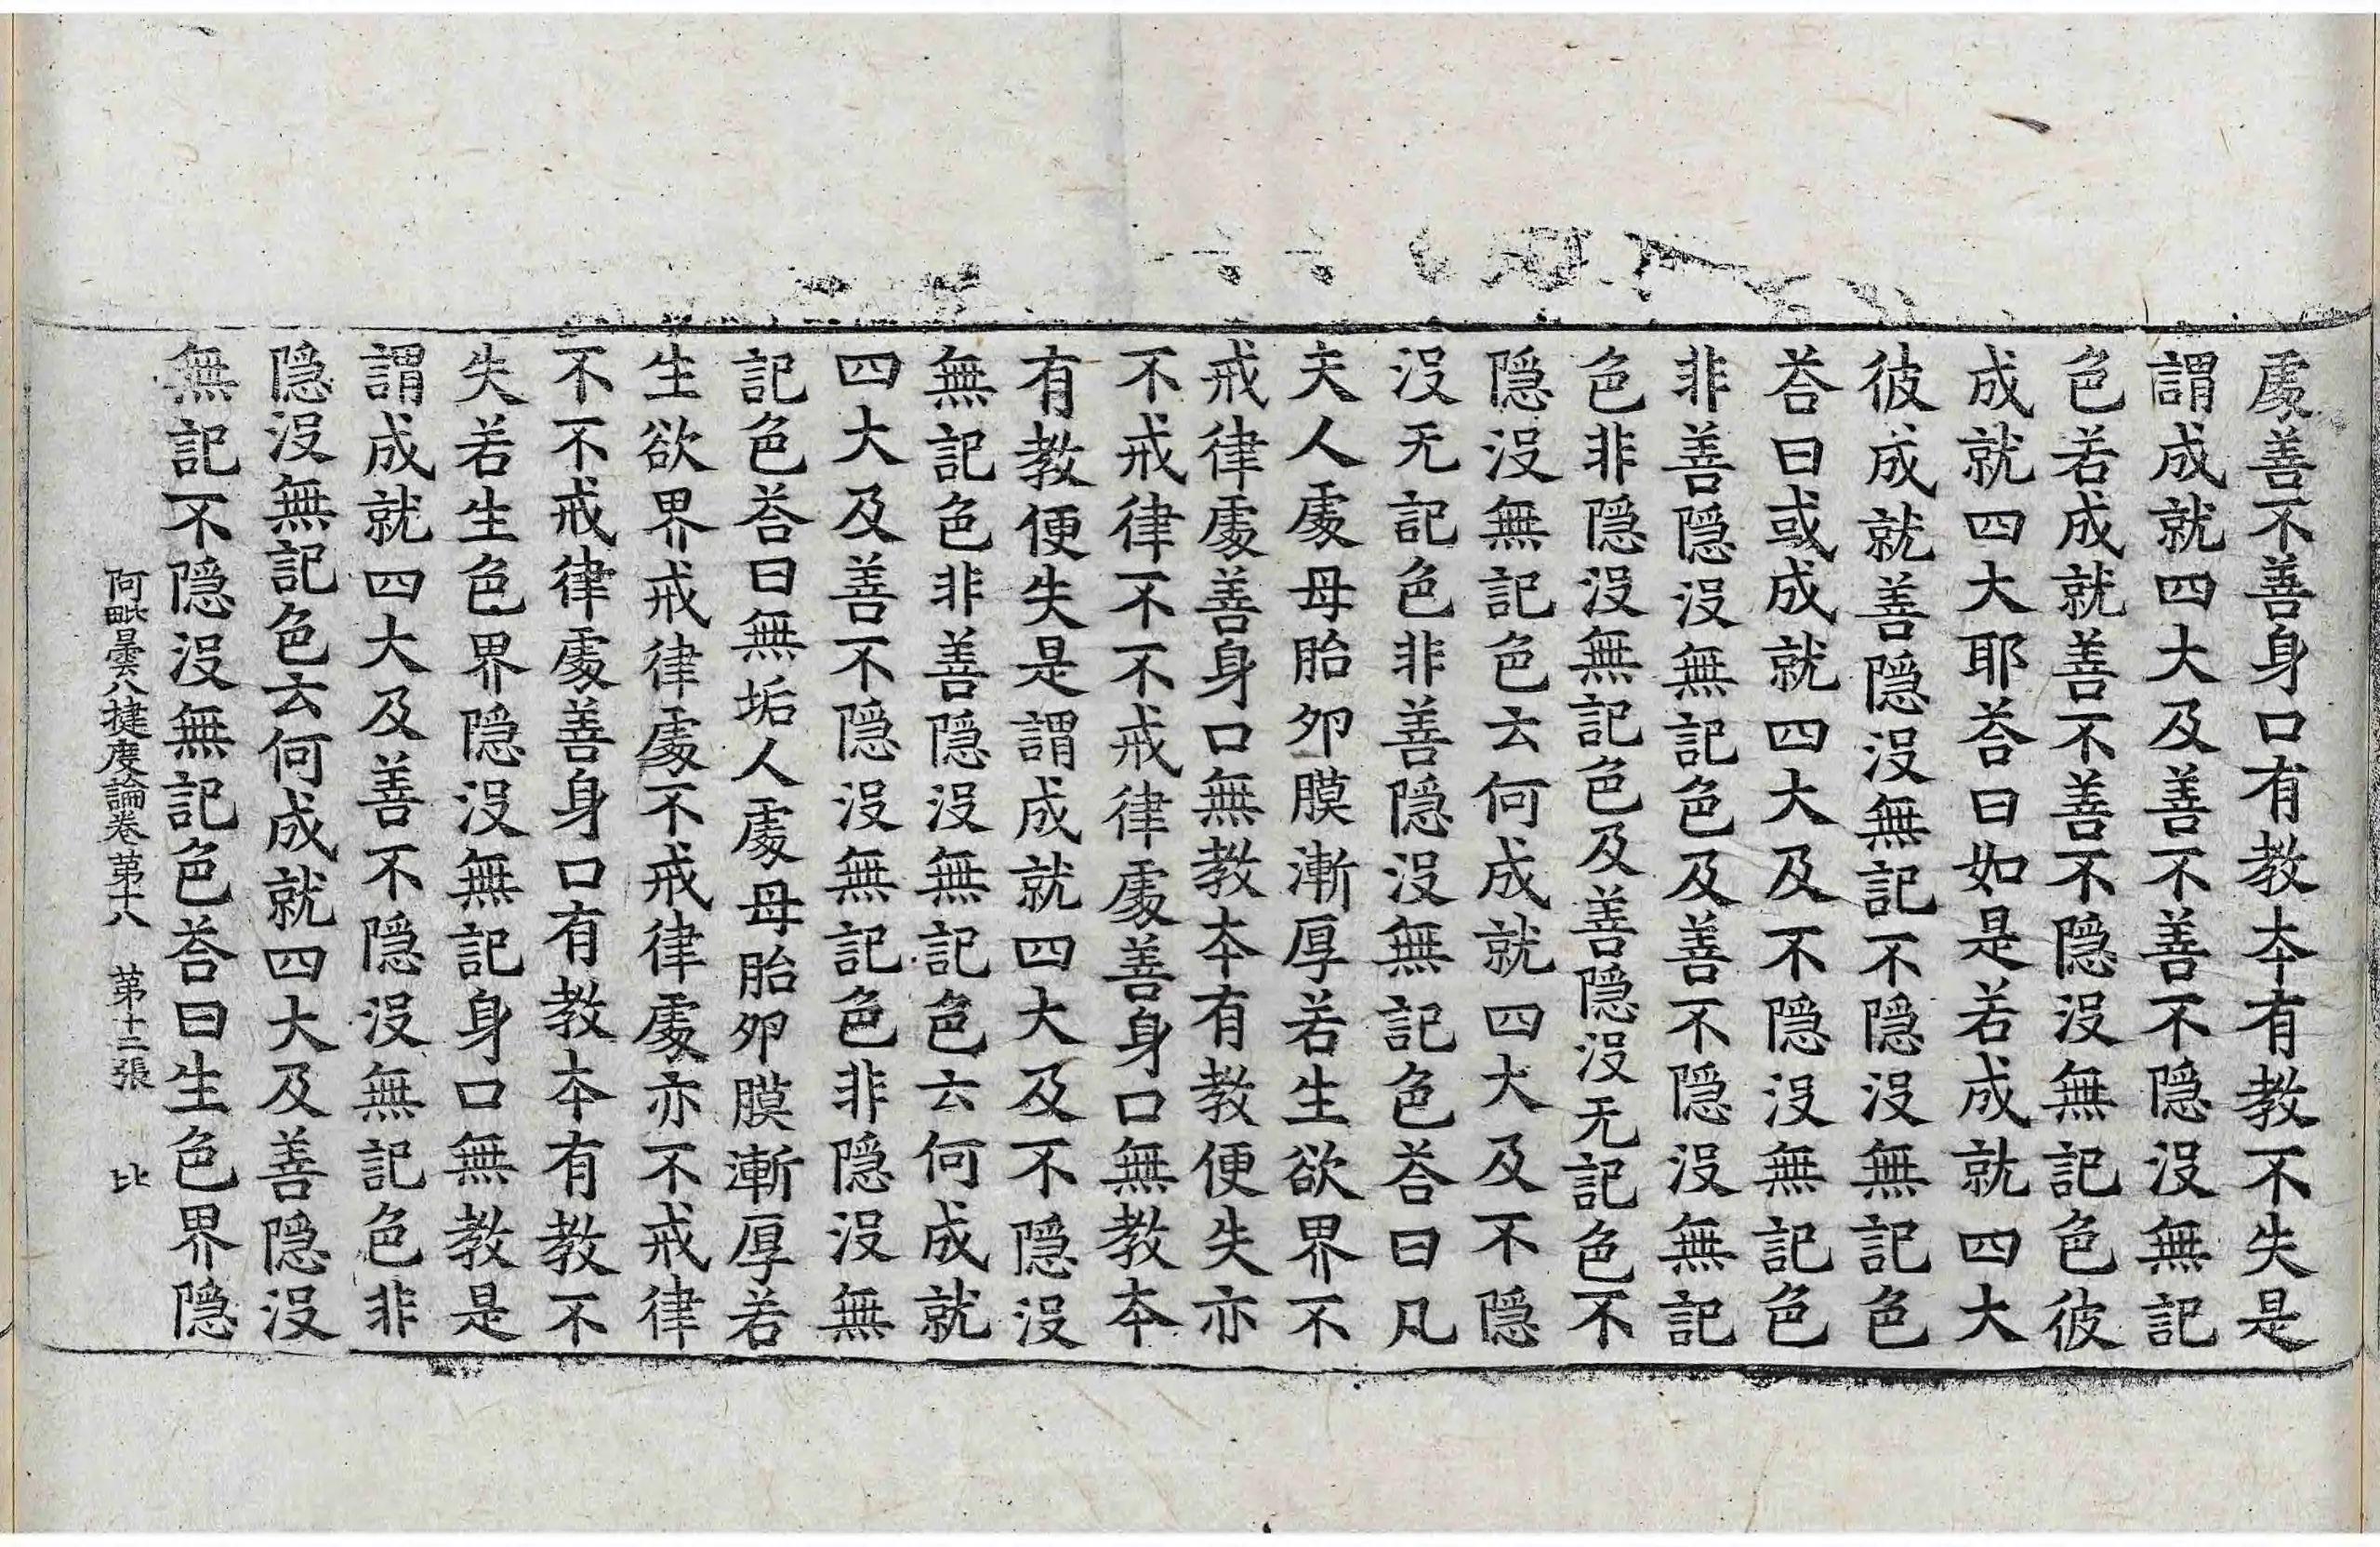 處善不善身口有教本有教不失是
謂成就四大及善不善不隱沒無記
色若成就善不善不隱沒無記色彼
成就四大耶荅曰如是若成就四大
彼成就善隱沒無記不隱沒無記色
荅曰或成就四大及不隱沒無記色
非善隱沒無記色及善不隱沒無記
色非隱沒無記色及善隱沒无記色不
隱沒無記色云何成就四大及不隱
沒无記色非善隱沒無記色荅曰凡
夫人處母胎夘膜漸厚若生欲界不
戒律處善身口無教本有教便失亦
不戒律不不戒律處善身口無教本
有教便失是謂成就四大及不隱沒
無記色非善隱沒無記色云何成就
四大及善不隱沒無記色非隱沒無
記色荅曰無垢人處母胎夘膜漸厚若
生欲界戒律處不戒律處亦不戒律
不不戒律處善身口有教本有教不
失若生色界隱沒無記身口無教是
謂成就四大及善不隱沒無記色非
隱沒無記色云何成就四大及善隱沒
無記不隱沒無記色荅曰生色界隱
阿毗曇八揵度論卷第十八 第十二張 比